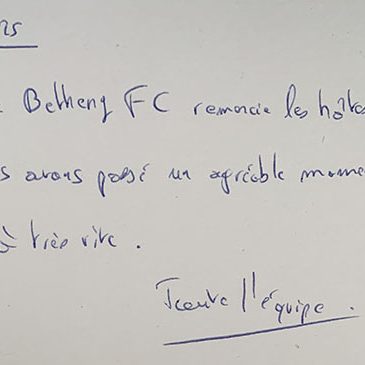 Betheny FC remercie les hôtes
s avons passé un agréable mome
à très vite.
Toute l'équipe.